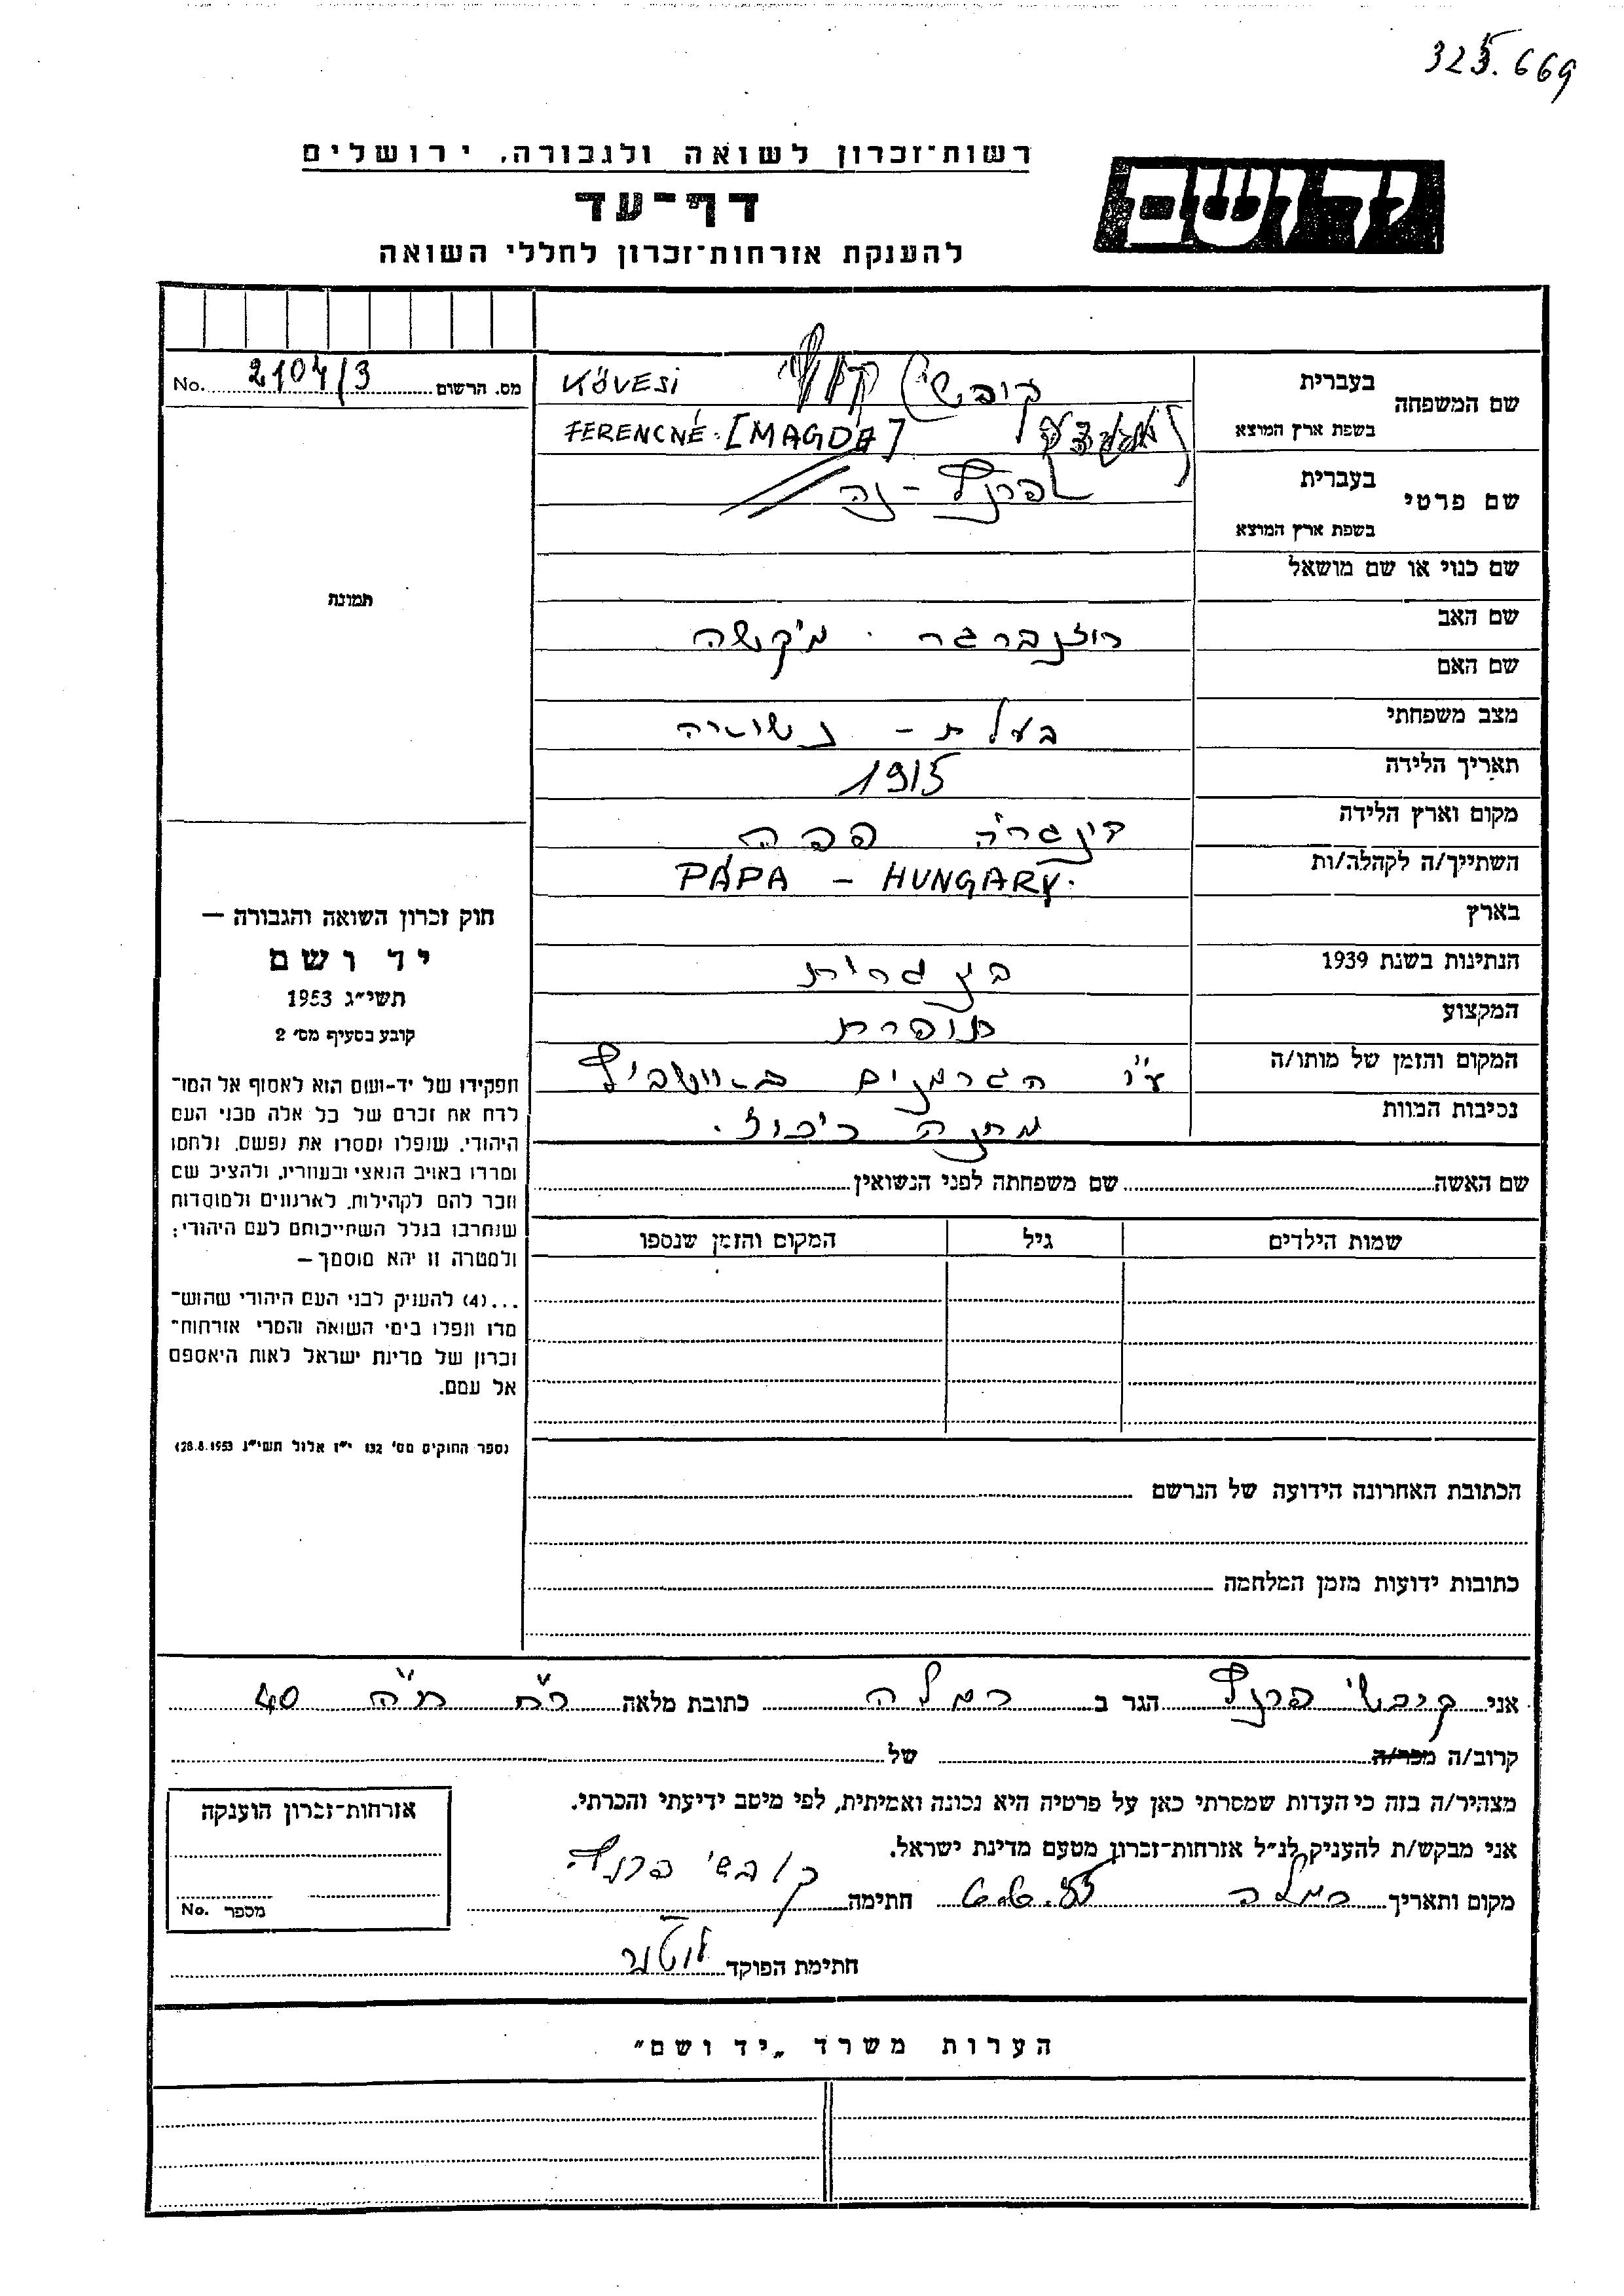 325.669
רשות־זכרון לשואה ולגבורה, ירושלים
דף־עד
להענקת אזרחות־זכרון לחללי השואה
יד ושם
No. 2104/3 מס. הרשום
שם המשפחה
בעברית קובשי
KÖVESI
בשפת ארץ המוצא
FERENCNÉ. [MAGDA]
שם פרטי
בעברית פרנץ - נה
בשפת ארץ המוצא
שם כנוי או שם מושאל
תמונה
שם האב
רוזנברגר . מיקשה
שם האם
מצב משפחתי
בעלת - נשואה
תאריך הלידה 1915
מקום וארץ הלידה הונגריה פפה
השתייך/ה לקהלה/ות PÁPA - HUNGARY.
בארץ
הנתינות בשנת 1939 הונגרית
המקצוע תופרת
המקום והזמן של מותו/ה ע"י הגרמנים
נסיבות המוות
חוק זכרון השואה והגבורה —
יד ושם
תשי״ג 1953
קובע בסעיף מס׳ 2
תפקידו של יד-ושם הוא לאסוף אל המו־
לדת את זכרם של כל אלה מבני העם
היהודי, שנפלו ומסרו את נפשם, נלחמו
ומרדו באויב הנאצי ובעוזריו, ולהציב שם
וזכר להם לקהילות, לארגונים ולמוסדות
שנחרבו בגלל השתייכותם לעם היהודי;
ולמטרה זו יהא מוסמך —
...(4) להעניק לבני העם היהודי שהוש־
מדו ונפלו בימי השואה והמרי אזרחות־
זכרון של מדינת ישראל לאות היאספם
אל עמם.
(ספר החוקים מס׳ 132 י״ז אלול תשי״ג 28.8.1953)
שם האשה שם משפחתה לפני הנשואין
שמות הילדים גיל המקום והזמן שנספו
הכתובת האחרונה הידועה של הנרשם
כתובות ידועות מזמן המלחמה
אני קובשי פרנץ הגר ב רמלה כתובת מלאה 40
קרוב/ה מכר/ה של
מצהיר/ה בזה כי העדות שמסרתי כאן על פרטיה היא נכונה ואמיתית, לפי מיטב ידיעתי והכרתי.
אני מבקש/ת להעניק לנ״ל אזרחות־זכרון מטעם מדינת ישראל.
מקום ותאריך רמלה חתימה קובשי פרנץ
חתימת הפוקד
אזרחות־זכרון הוענקה
No. מספר
הערות משרד „יד ושם״